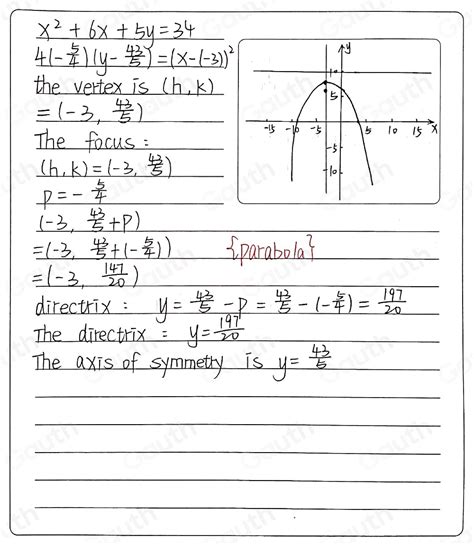 x² + 6x + 5y = 34
4(-5/4)(y - 43/5) = (x - (-3))²
the vertex is (h, k)
= (-3, 43/5)
The focus :
(h, k) = (-3, 43/5)
p = - 5/4
(-3, 43/5 + P)
= (-3, 43/5 + (-5/4))
{parabola}
= (-3, 147/20)
directrix : y = 43/5 - P = 43/5 - (-5/4) = 197/20
The directrix : y = 197/20
The axis of symmetry is y = 43/5
y
10
5
-15 -10 -5 5 10 15 x
-5
-10
Gauth